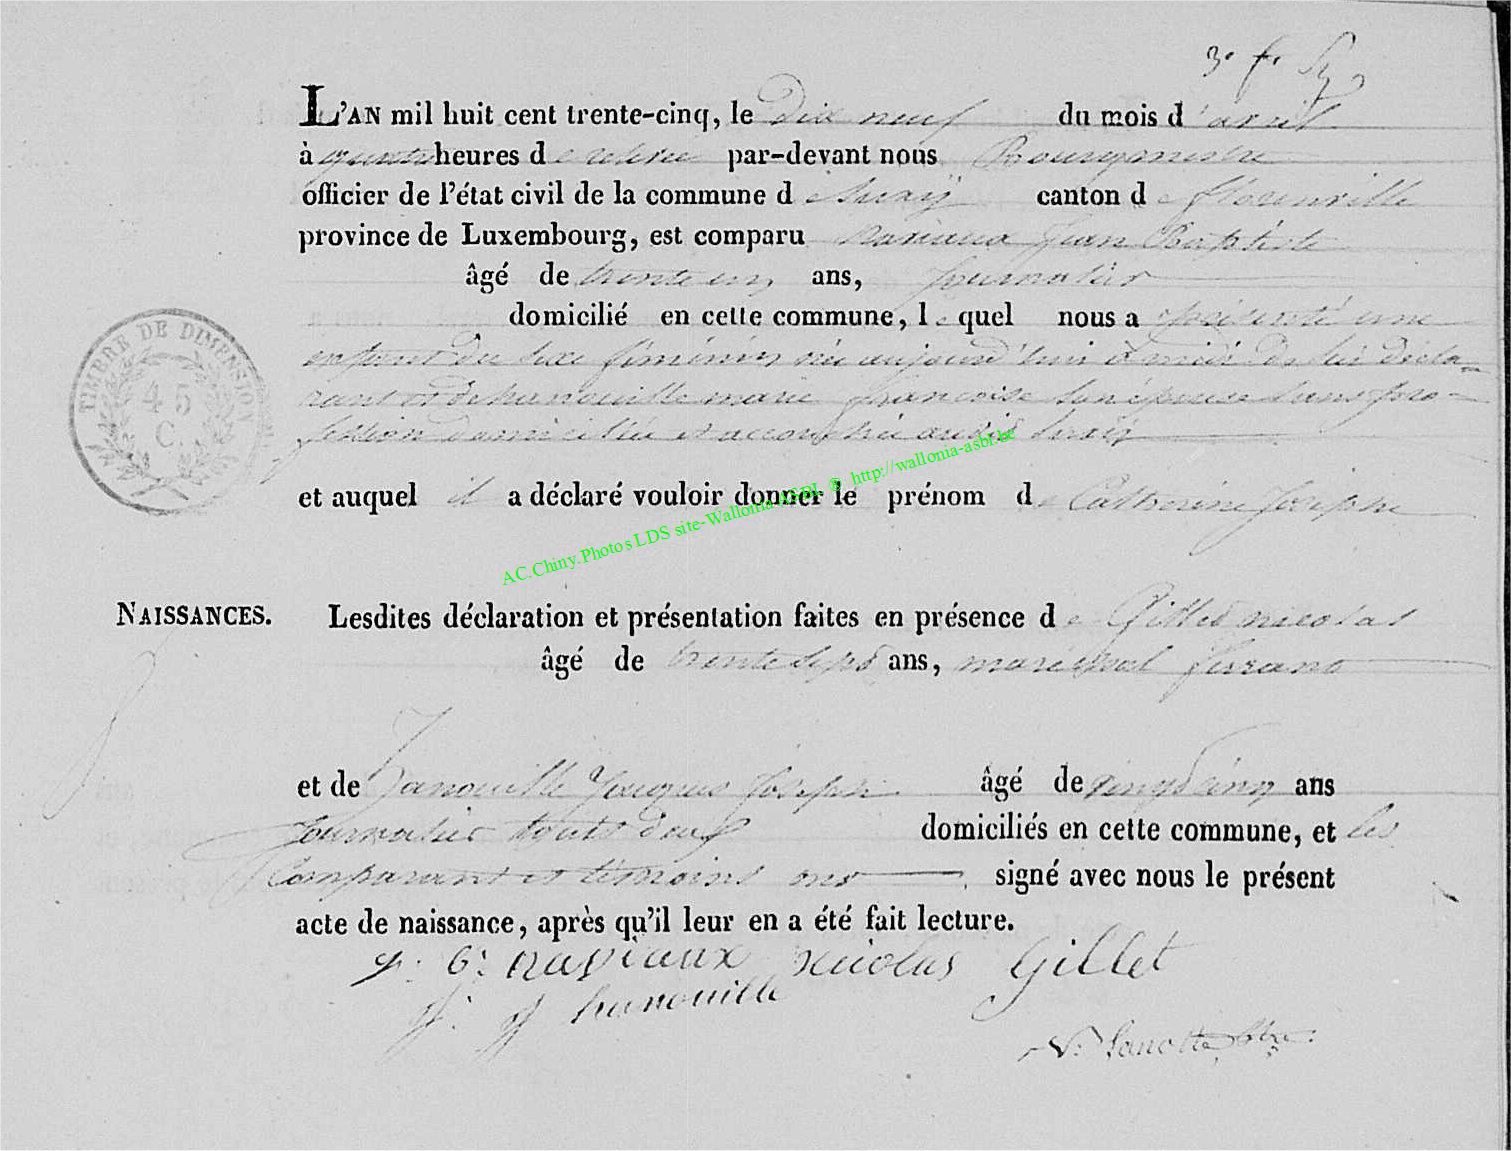 3. f.
L'AN mil huit cent trente-cinq, le Dix neuf du mois d'avril
à quatre heures de relevée par-devant nous Bourgmestre
officier de l'état civil de la commune de Suxÿ canton de florenville
province de Luxembourg, est comparu Naviaux Jean Baptiste
âgé de trente un ans, journalier
domicilié en cette commune, lequel nous a présenté une
enfant du sexe féminin née aujourd'hui à midi de lui décla-
rant et de hanouille marie françoise son épouse sans pro-
fession domiciliée et accouchée audit Suxÿ
et auquel il a déclaré vouloir donner le prénom de Catherine Josephe
NAISSANCES. Lesdites déclaration et présentation faites en présence de Gillet nicolas
âgé de trente sept ans, maréchal ferrant
et de hanouille Jacques Joseph âgé de vingt cinq ans
Journalier tous deux domiciliés en cette commune, et les
Comparant et témoins ont signé avec nous le présent
acte de naissance, après qu'il leur en a été fait lecture.
naviaux nicolas Gillet
j. j hanouille
Lanotte
TIMBRE DE DIMENSION
45
C.
AC.Chiny.Photos LDS site-Wallonia ASBL ® http://wallonia-asbl.be